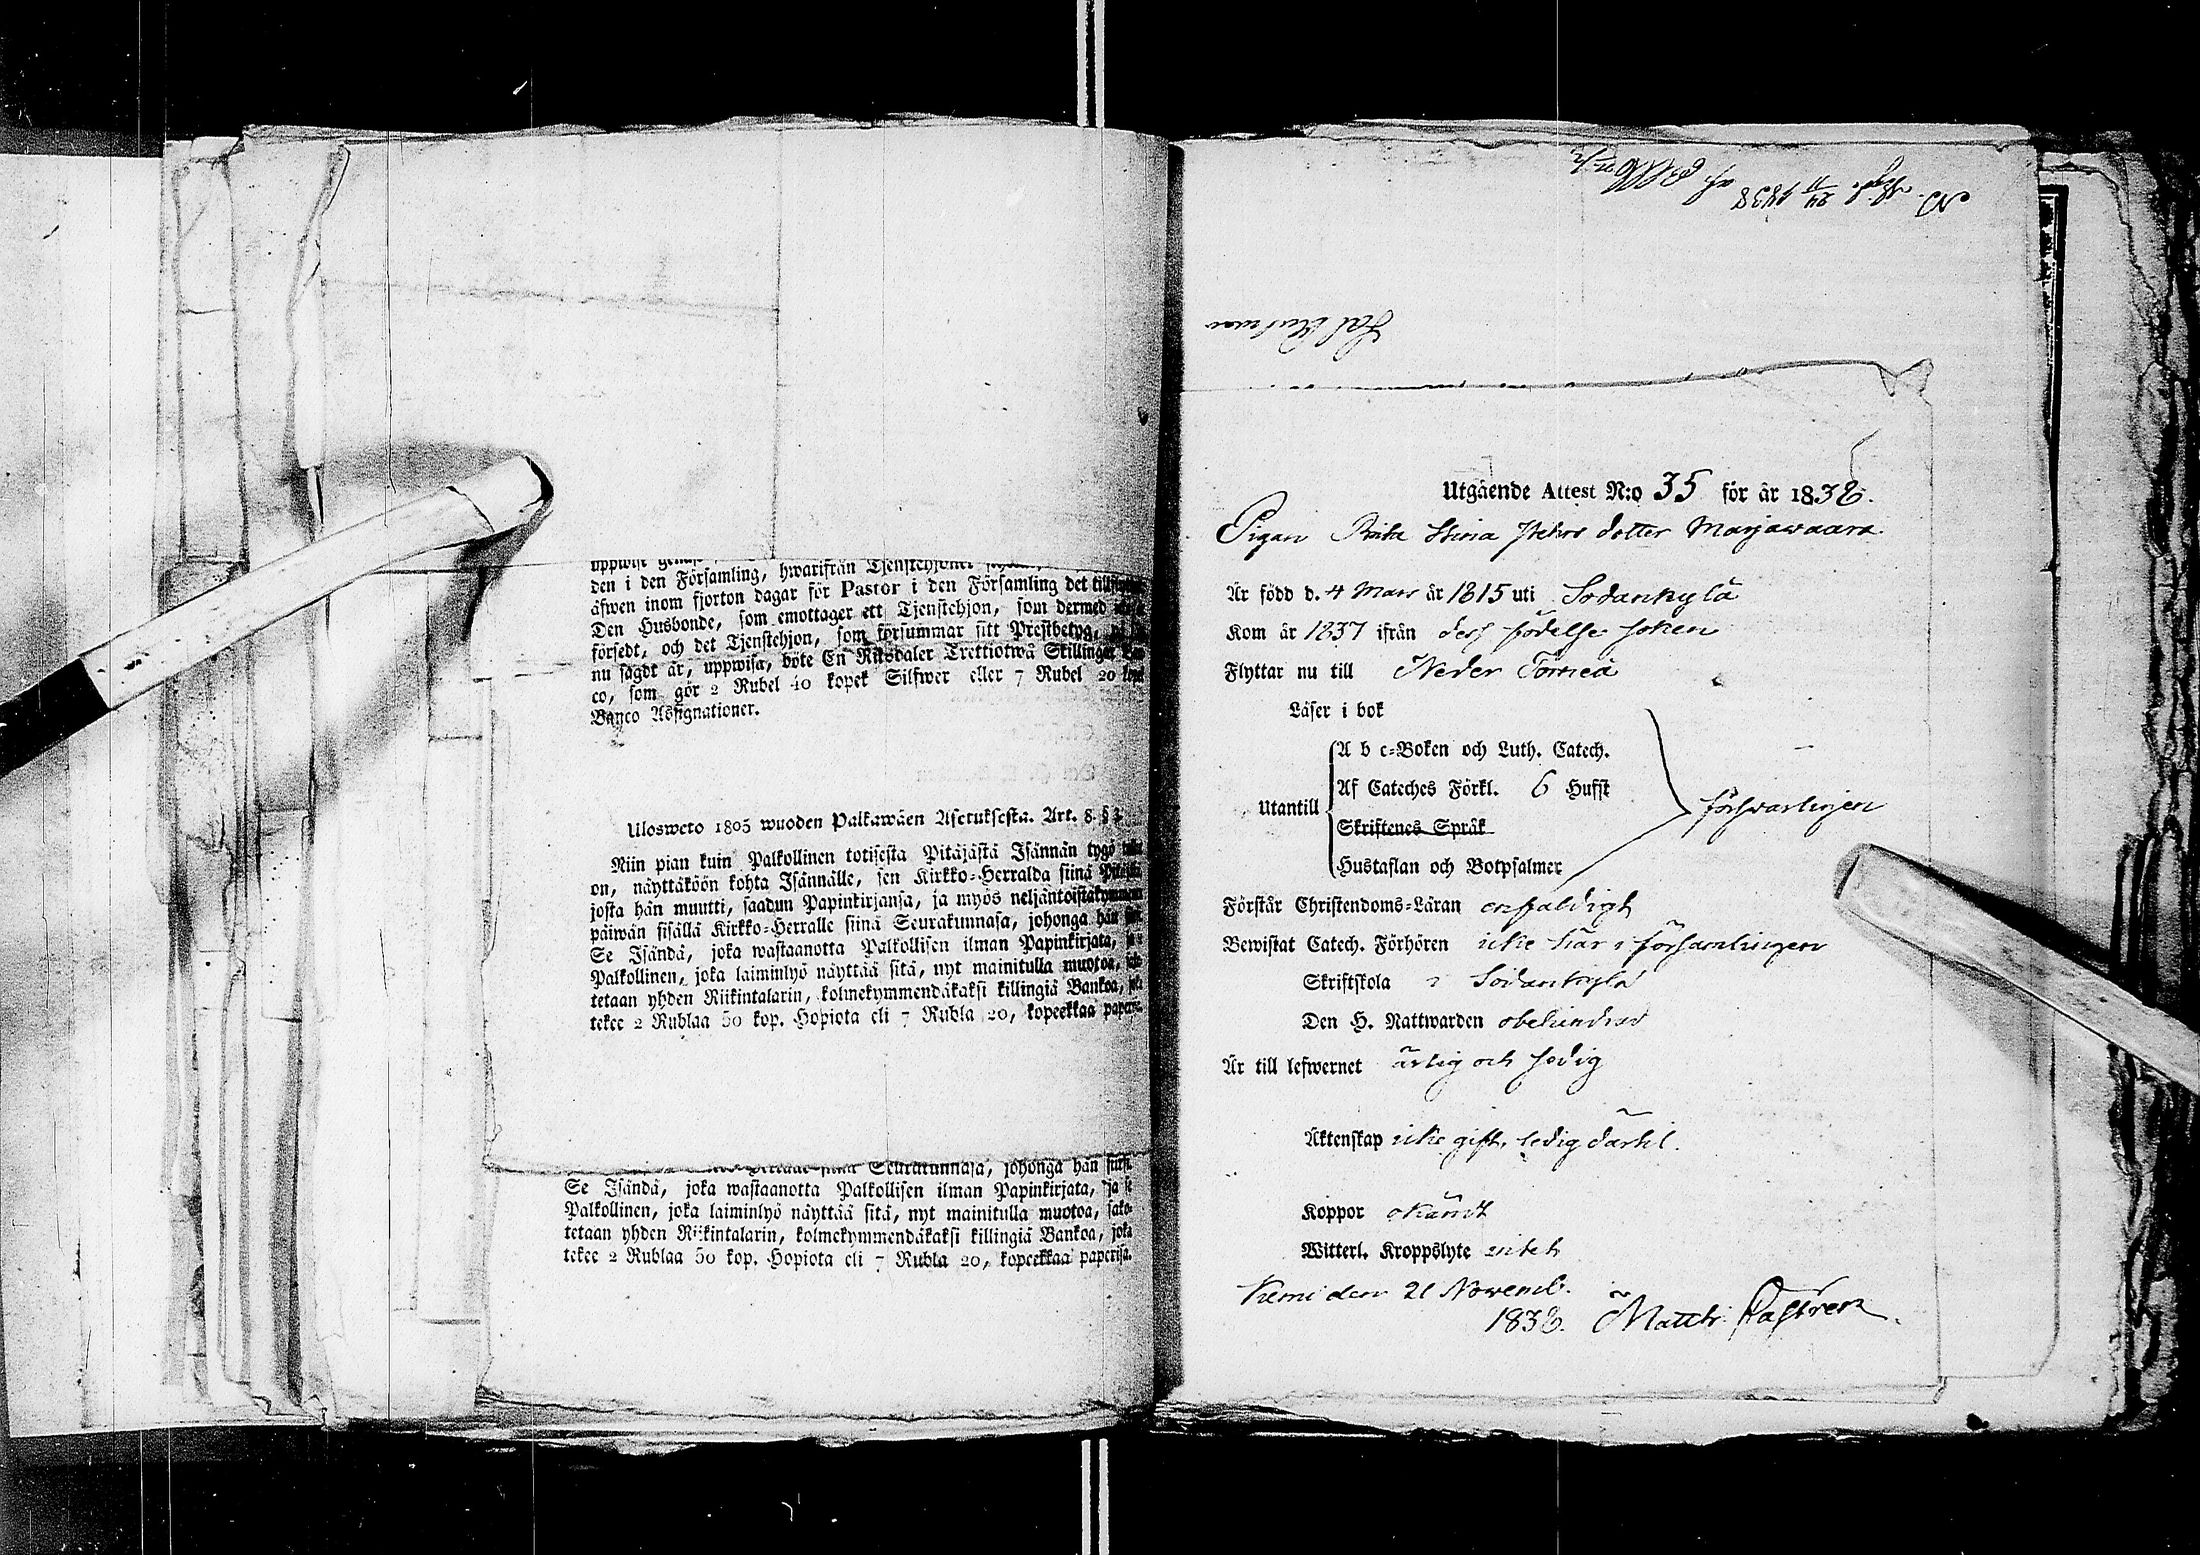 den i den Församling, hwarifrån Tjenstehjonet
äfwen inom fjorton dagar för Pastor i den Församling det
Den Husbonde, som emottager ett Tjenstehjon, som dermed
försedt, och det Tjenstehjon, som försummar sitt Prestbetyg,
nu sagdt är, uppwisa, böte En Riksdaler Trettiotwå Skillingar
co, som gör 2 Rubel 40 kopek Silfwer eller 7 Rubel 20
Banco Assignationer.
Ulosweto 1805 wuoden Palkawäen Asetuksesta. Art. 8 §
Niin pian kuin Palkollinen totisesta Pitäjästä Isännän tygö
on, näyttäköön kohta Isännälle, sen Kirkko-Herralda siinä
josta hän muutti, saadun Papinkirjansa, ja myös neljäntoistakymmen
päiwän sisällä Kirkko-Herralle siinä Seurakunnasa, johonga hän
Se Isändä, joka wastaanotta Palkollisen ilman Papinkirjata,
Palkollinen, joka laiminlyö näyttää sitä, nyt mainitulla muotoa,
tetaan yhden Riikintalarin, kolmekymmendäkaksi killingiä Bankoa,
tekee 2 Rublaa 50 kop. Hopiota eli 7 Rubla 20, kopeekkaa
Seurakunnasa, johonga hän
Se Isändä, joka wastaanotta Palkollisen ilman Papinkirjata, ja se
Palkollinen, joka laiminlyö näyttää sitä, nyt mainitulla muotoa, sako-
tetaan yhden Riikintalarin, kolmekymmendäkaksi killingiä Bankoa, joka
tekee 2 Rublaa 50 kop. Hopiota eli 7 Rubla 20, kopeekkaa paperisa.
24/11 1838
Utgående Attest N:o 35 för år 1838.
Pigan Brita Stina Pehrs dotter Marjawaara
Är född d. 4 Mars år 1815 uti Sodankylä
Kom år 1837 ifrån dess födelse soken
Flyttar nu till Neder Torneå
Läser i bok
A b c-Boken och Luth. Catech.
Af Cateches Förkl. 6 Hufst
Utantill
försvarligen
Skriftenes Språk
Hustaflan och Botpsalmer
Förstår Christendoms-Läran enfaldigt
Bewistat Catech. Förhören icke här i församlingen
Skriftskola i Sodankylä
Den H. Nattwarden obehindrad
Är till lefwernet ärlig och sedig
Äktenskap icke gift, ledig därtil.
Koppor okändt
Witterl. Kroppslyte intet
Kemi den 21 Novemb.
1838. Matth: Castrén.